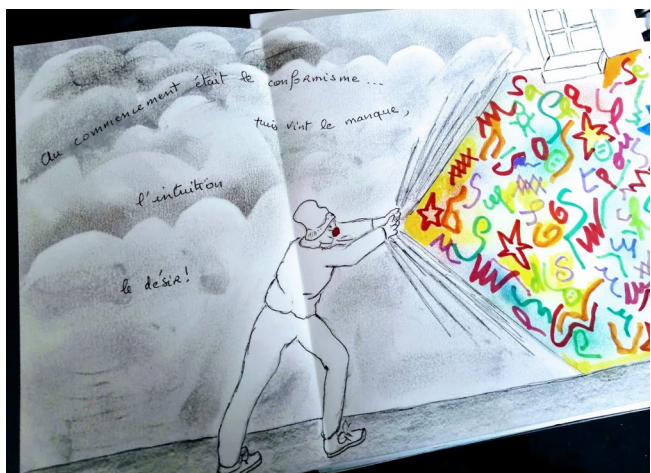 Au commencement était le conformisme...
Puis vint le manque,
l'intuition
le désir!